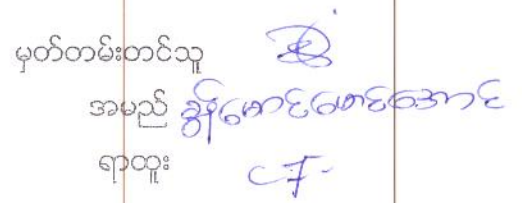 မှတ်တမ်းတင်သူ
အမည် ခွန်မောင်မောင်အောင်
ရာထူး